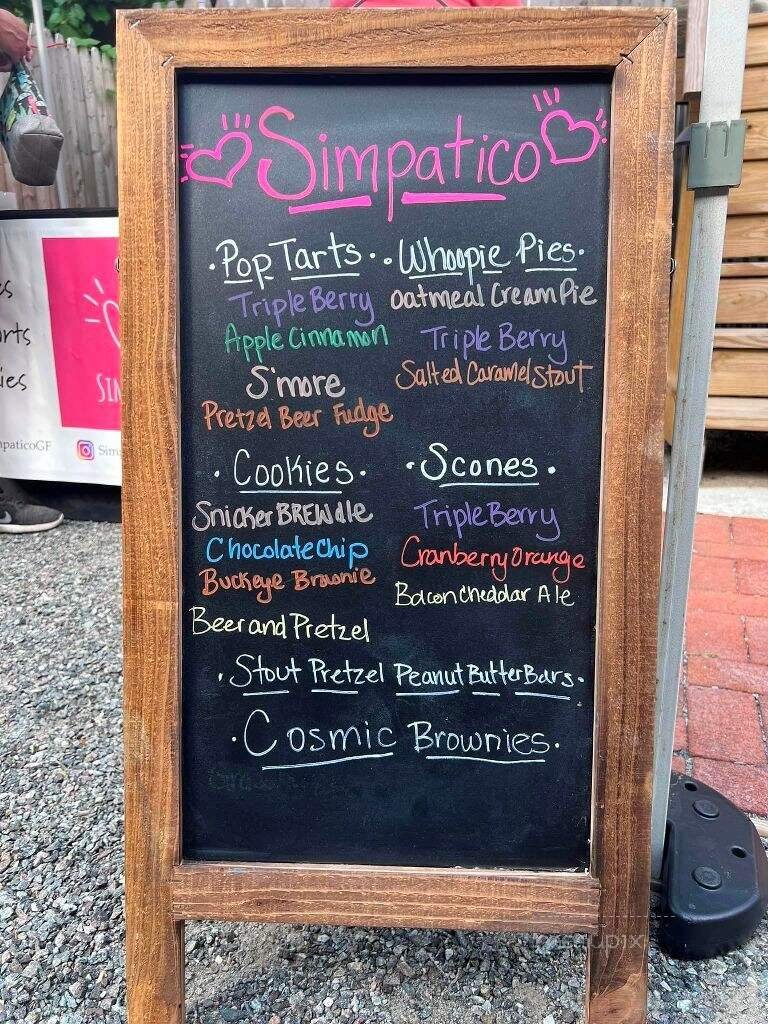 Simpatico
·Pop Tarts·
Triple Berry
Apple Cinnamon
S'more
Pretzel Beer Fudge
·Whoopie Pies·
Oatmeal Cream Pie
Triple Berry
Salted Caramel Stout
·Cookies·
SnickerBREWdle
Chocolate Chip
Buckeye Brownie
Beer and Pretzel
·Scones·
Triple Berry
Cranberry Orange
Bacon Cheddar Ale
·Stout Pretzel Peanut Butter Bars·
·Cosmic Brownies·